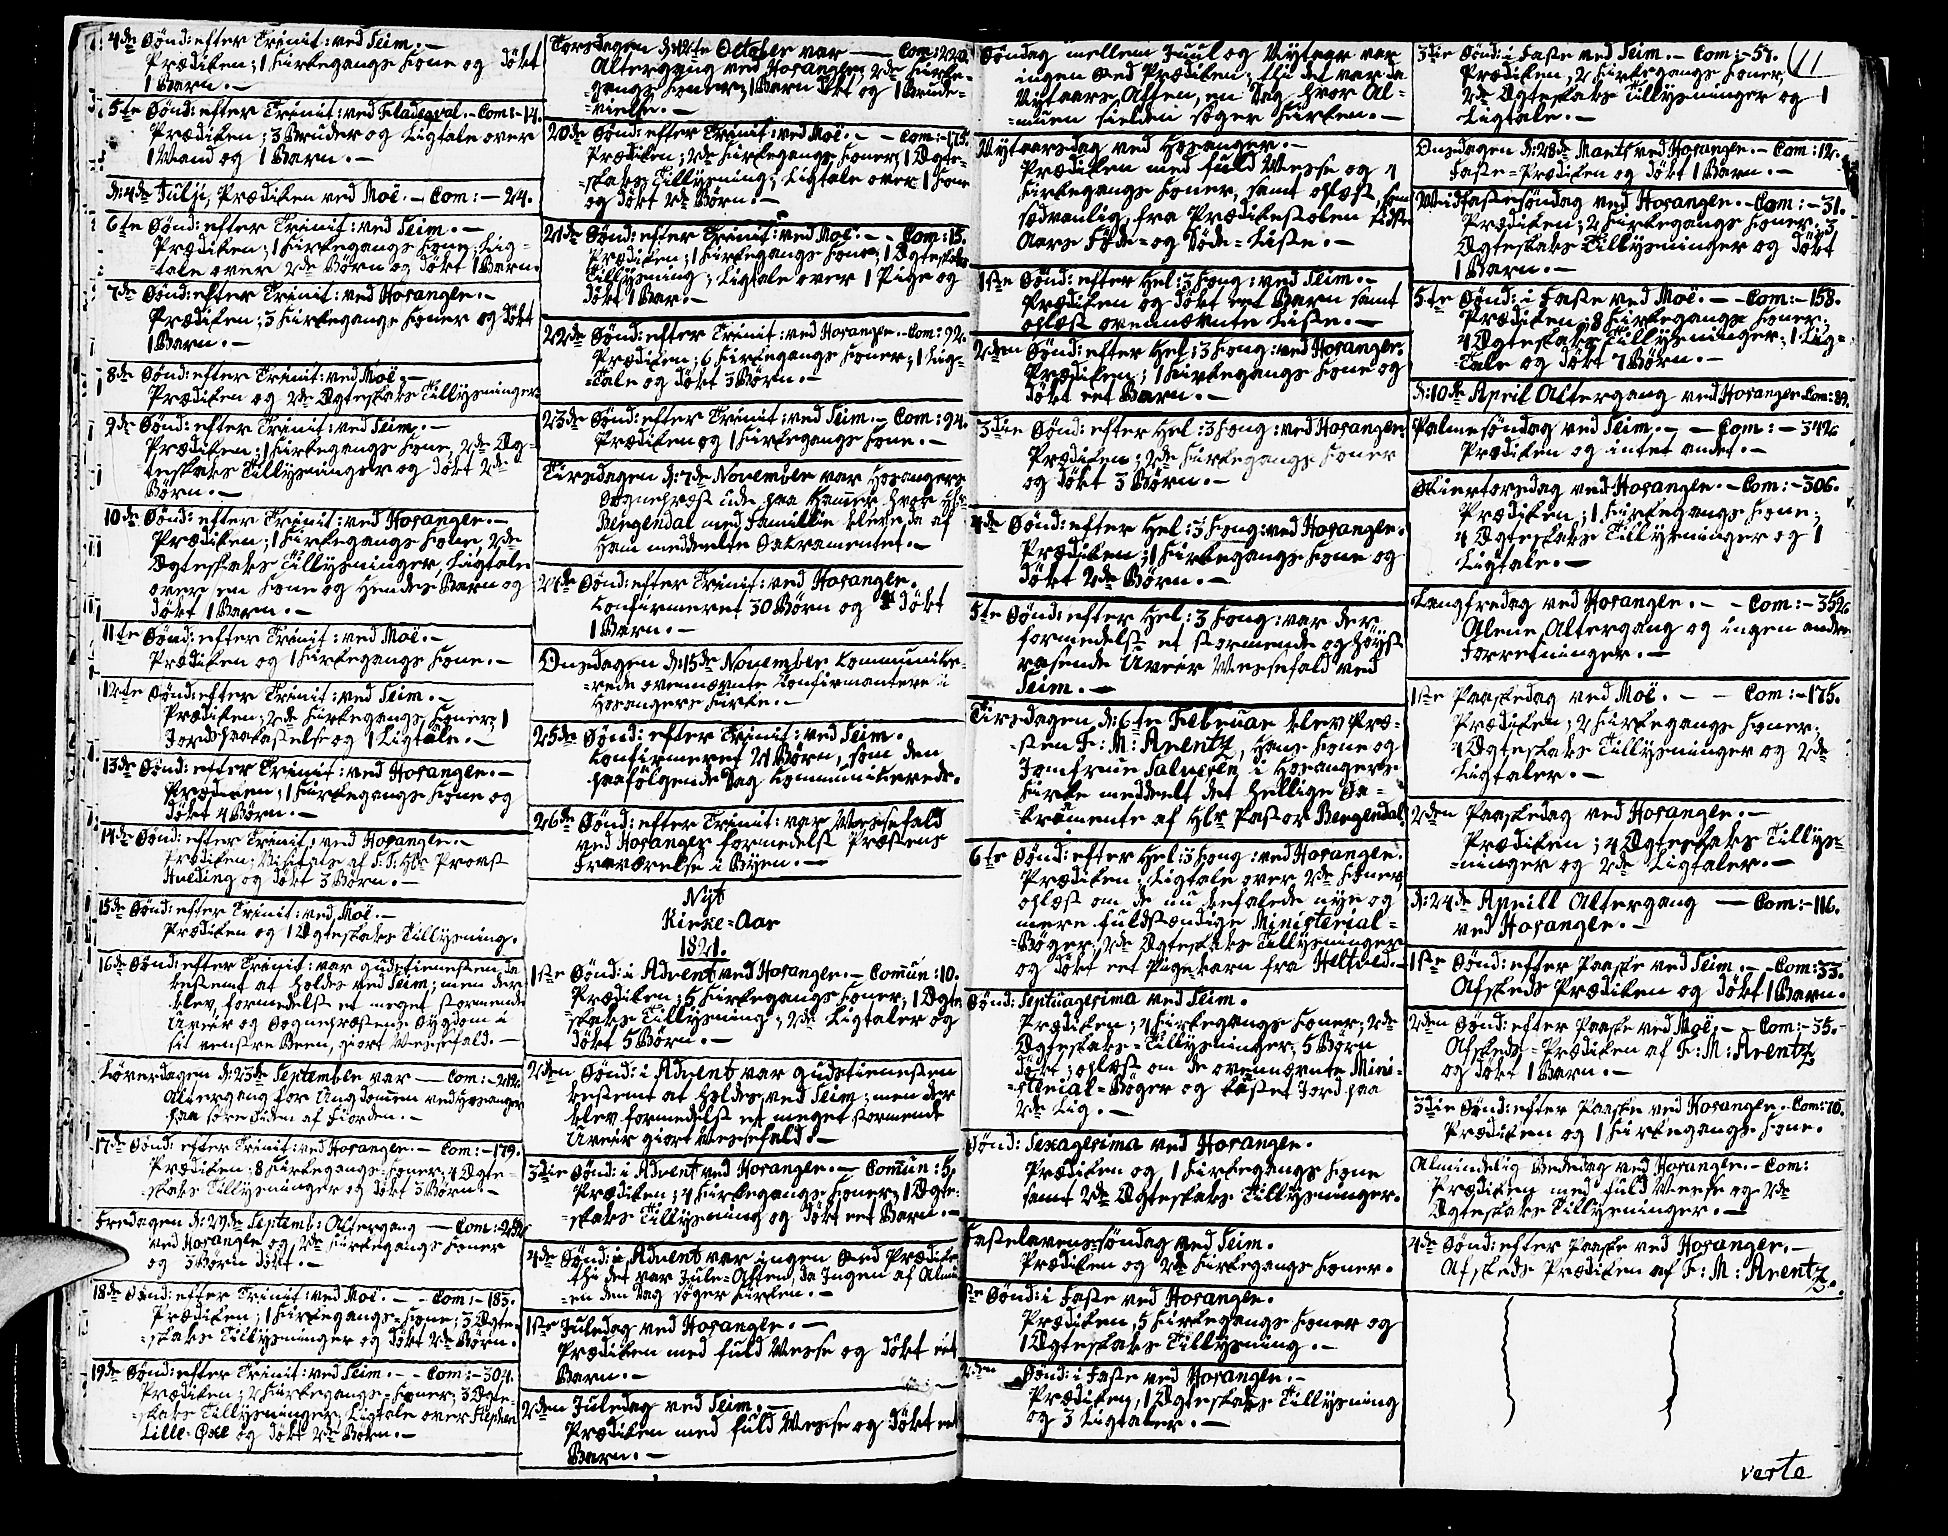 4de Sønd: efter Trinit: ved Seim. —
Prædiken; 1 Kirkegangs Kone og døbt
1 Barn. —
5te Sønd: efter Trinit: ved Com: - 14.
Prædiken; 3 Bruder og Ligtale over
1 Mand og 1 Barn. —
d: 4de Julji, Prædiken ved Moë. — Com: — 24.
6te Sønd: efter Trinit: ved Seim. —
Prædiken; 1 Kirkegangs Kone; Lig-
-tale over 2de Børn og døbt 1 Barn.
7de Sønd: efter Trinit: ved Hosanger. —
Prædiken; 3 Kirkegangs Koner og døbt
1 Barn. —
8de Sønd: efter Trinit: ved Moë. —
Prædiken og 2de Ægteskabs Tillysninger.
9de Sønd: efter Trinit: ved Seim. —
Prædiken; 1 Kirkegangs Kone, 2de Æg-
-teskabs Tillysninger og døbt 2de
Børn. —
10de Sønd: efter Trinit: ved Hosanger. —
Prædiken; 1 Kirkegangs Kone, 2de
Ægteskabs Tillysninger, Ligtale
over en Kone og hendes Barn og
døbt 1 Barn. —
11te Sønd: efter Trinit: ved Moë. —
Prædiken og 1 Kirkegangs Kone. —
12te Sønd: efter Trinit: ved Seim. —
Prædiken; 2de Kirkegangs Koner; 1
Jordspaakastelse og 1 Ligtale. —
13de Sønd: efter Trinit: ved Hosanger. —
Prædiken; 1 Kirkegangs Kone og
døbt 4 Børn. —
14de Sønd: efter Trinit: ved Hosanger. —
Prædiken; Visitats af Hr Provst
og døbt 3 Børn. —
15de Sønd: efter Trinit: ved Moë. —
Prædiken og 1 Ægteskabs Tillysning.
16de Sønd: efter Trinit: var Gudstienesten da
bestemt at holdes ved Seim; men der
blev formedelst et meget stormende
Uveir og Sognepræstens Sygdom i
sit venstre Been, giort Messefald. —
Løverdagen d: 23de September var — Com: - 212.
Altergang for Ungdomen ved Hosanger
paa Søre Siden af Fiorden. —
17de Sønd: efter Trinit: ved Hosanger. — Com: - 179.
Prædiken; 8 Kirkegangs-Koner; 4 Ægte-
-skabs Tillysninger og døbt 3 Børn. —
Fredagen d: 29de Septemb: Altergang — Com: - 252
ved Hosanger og 2de Kirkegangs Koner
og 3 Børn døbt. —
18de Sønd: efter Trinit: ved Moë. — - Com: - 183.
Prædiken; 1 Kirkegangs-Kone; 3 Ægte-
-skabs Tillysninger og døbt 2de Børn.
19de Sønd: efter Trinit: ved Seim. — - Com: - 304.
Prædiken; 2 Kirkegangs-Koner; 3 Ægte-
-skabs Tillysninger, Ligtale over Stephen
Lille-Øxe og døbt 2de Børn. —
Torsdagen d: 12te October var — Com: 220.
Altergang ved Hosanger; 2de Kirke-
-gangs Koner; 1 Barn døbt og 1 Brude-
-vielse. —
20de Sønd: efter Trinit: ved Moë. — - Com: - 175.
Prædiken; 2de Kirkegangs Koner; 1 Ægte-
-skabs Tillysning; Ligtale over 1 Kone
og døbt 2de Børn. —
21de Sønd: efter Trinit: ved Moë. — - Com: 15.
Prædiken; 1 Kirkegangs Kone; 1 Ægteskabs
Tillysning; Ligtale over 1 Pige og
døbt 1 Barn. —
22de Sønd: efter Trinit: ved Hosanger. - Com: 92.
Prædiken; 6 Kirkegangs Koner; 1 Lig-
-tale og døbt 3 Børn. —
23de Sønd: efter Trinit: ved Seim. — Com: 94.
Prædiken og 1 Kirkegangs Kone. —
Tirsdagen d: 7de November var Hosangers
Sognepræst ude paa Hammer, hvor Hr
Bergendal med Famillie bleve da af
ham meddeelte Sakramentet. —
24de Sønd: efter Trinit: ved Hosanger.
Confirmeret 30 Børn og døbt
1 Barn. —
Onsdagen d: 15de November Communice-
-rede ovennævnte Confirmantere i
Hosangers Kirke. —
25de Sønd: efter Trinit: ved Seim.
Confirmeret 21 Børn, som den
paafølgende Dag Communicerede.
26de Sønd: efter Trinit: var Messefald
ved Hosanger formedelst Præstens
Fraværelse i Byen. —
Nyt
Kirke-Aar
1821.
1ste Sønd: i Advent ved Hosanger. — Comūn: 10.
Prædiken; 5 Kirkegangs Koner; 1 Ægte-
-skabs Tillysning; 2de Ligtaler og
døbt 5 Børn. —
2den Sønd: i Advent var Gudstienesten
bestemt at holdes ved Seim; men der
blev formedelst et meget stormende
Uveir giort Messefald. —
3die Sønd: i Advent ved Hosanger. — Comūn: 5.
Prædiken; 4 Kirkegangs Koner; 1 Ægte-
-skabs Tillysning og døbt eet Barn. —
4de Sønd: i Advent var ingen Præd
thi det var Jule-Aften, da Ingen af Almu-
-en den Dag søger Kirken. —
1ste Juledag ved Hosanger. —
Prædiken med fuld Messe og døbt eet
Barn. —
2den Juledag ved Seim. —
Prædiken med fuld Messe og døbt eet
Barn. —
Søndag mellem Juul og Nytaar var
ingen Prædiken; thi det var da
Nytaars Aften, en Dag hvor Al-
-muen sielden søger Kirken. —
Nytaarsdag ved Hosanger. —
Prædiken med fuld Messe og 4
Kirkegangs Koner, samt oplæst som
sædvanlig, fra Prædikestolen sidste
Aars Føde- og Døde-Liste. —
1ste Sønd: efter Hel: 3 Kong: ved Seim. —
Prædiken og døbt eet Barn samt
oplæst ovennævnte Liste. —
2den Sønd: efter Hel: 3 Kong: ved Hosanger.
Prædiken; 1 Kirkegangs Kone og
døbt eet Barn. —
3die Sønd: efter Hel: 3 Kong: ved Hosanger:
Prædiken; 2de Kirkegangs Koner
og døbt 3 Børn. —
4de Sønd: efter Hel: 3 Kong: ved Hosanger.
Prædiken; 1 Kirkegangs Kone og
døbt 2de Børn. —
5te Sønd: efter Hel: 3 Kong: var der
formedelst et stormende og høyst
rasende Uveir Messefald ved
Seim. —
Tirsdagen d: 6te Februar blev Præ-
-sten F: M: Arentz, hans Kone og
Jomfrue Salvesen i Hosangers
Kirke meddeelt det hellige Sa-
-kramente af Hr Pastor Bergendal.
6te Sønd: efter Hel: 3 Kong: ved Hosanger.
Prædiken; Ligtale over 2de Koner,
oplæst om de nu befalede nye og
mere fuldstændige Ministerial-
-Bøger, 2de Ægteskabs Tillysninger
og døbt eet Pigebarn fra Heltved. —
Sønd: Septuagesima ved Seim.
Prædiken; 4 Kirkegangs Koner; 2de
Ægteskabs-Tillysninger; 5 Børn
døbt; oplæst om de ovennævnte Mini-
-sterial-Bøger og kastet Jord paa
2de Lig. —
Sønd: Sexagesima ved Hosanger.
Prædiken og 1 Kirkegangs Kone
samt 2de Ægteskabs Tillysninger.
Fastelavens-søndag ved Seim.
Prædiken og 2de Kirkegangs Koner.
1ste Sønd: i Faste ved Hosanger.
Prædiken; 5 Kirkegangs Koner og
1 Ægteskabs Tillysning. —
2den Sønd: i Faste ved Hosanger. —
Prædiken, 1 Ægteskabs Tillysning
og 3 Ligtaler. —
3die Sønd: i Faste ved Seim. — Com: - 57. 11
Prædiken; 2 Kirkegangs Koner,
2de Ægteskabs Tillysninger og 1
Ligtale. —
Onsdagen d: 28de Marts ved Hosanger. — Com: 12.
Faste-Prædiken og døbt 1 Barn. —
Midfastesøndag ved Hosanger. - Com: - 31.
Prædiken; 2 Kirkegangs Koner; 3
Ægteskabs Tillysninger og døbt
1 Barn. —
5te Sønd: i Faste ved Moë. — - Com: - 158.
Prædiken; 8 Kirkegangs Koner;
4 Ægteskabs Tillysninger; 1 Lig-
-Tale og døbt 4 Børn. —
d: 10de April Altergang ved Hosanger Com: 89.
Palmesøndag ved Seim. — — Com: - 342
Prædiken og intet andet. —
Skiertorsdag ved Hosanger. - Com: - 306.
Prædiken; 1 Kirkegangs Kone;
4 Ægteskabs Tillysninger og 1
Ligtale. —
Langfredag ved Hosanger. — - Com: - 352
Alene Altergang og ingen andre
Forretninger. —
1ste Paaskedag ved Moë. — - Com: - 175.
Prædiken; 2 Kirkegangs Koner;
4 Ægteskabs Tillysninger og 2de
Ligtaler. —
2den Paaskedag ved Hosanger. —
Prædiken; 4 Ægteskabs Tillys-
-ninger og 2de Ligtaler. —
d: 24de Aprill Altergang — Com: - 116.
ved Hosanger. —
1ste Sønd: efter Paaske ved Seim. — - Com: 33.
Afskeds Prædiken og døbt 1 Barn.
2den Sønd: efter Paaske ved Moë. — - Com: - 35.
Afskeds-Prædiken af F: M: Arentz
og døbt 1 Barn. —
3die Sønd: efter Paaske ved Hosanger. - Com: 70.
Prædiken og 1 Kirkegangs Kone.
Almindelig Bededag ved Hosanger. - Com:
Prædiken med fuld Messe og 2de
Ægteskabs Tillysninger. —
4de Sønd: efter Paaske ved Hosanger. —
Afskeds Prædiken af F: M: Arentz.
verte